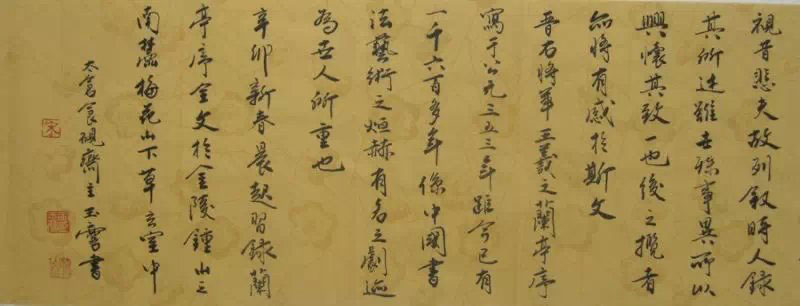 視昔悲夫故列叙時人錄
其所述雖世殊事異所以
興懷其致一也後之攬者
亦將有感於斯文
晉右將軍王羲之蘭亭序
寫于公元三五三年距今已有
一千六百多年係中國書
法藝術之烜赫有名之劇迹
為世人所重也
辛卯新春晨起習錄蘭
亭序全文於金陵鍾山之
南麓梅花山下草玄室中
太倉食硯齋主玉書